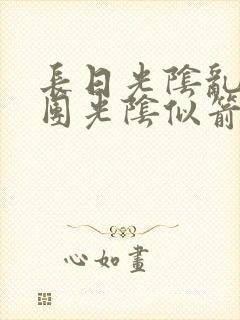 長日光陰亂
園光陰似箭
心如畫